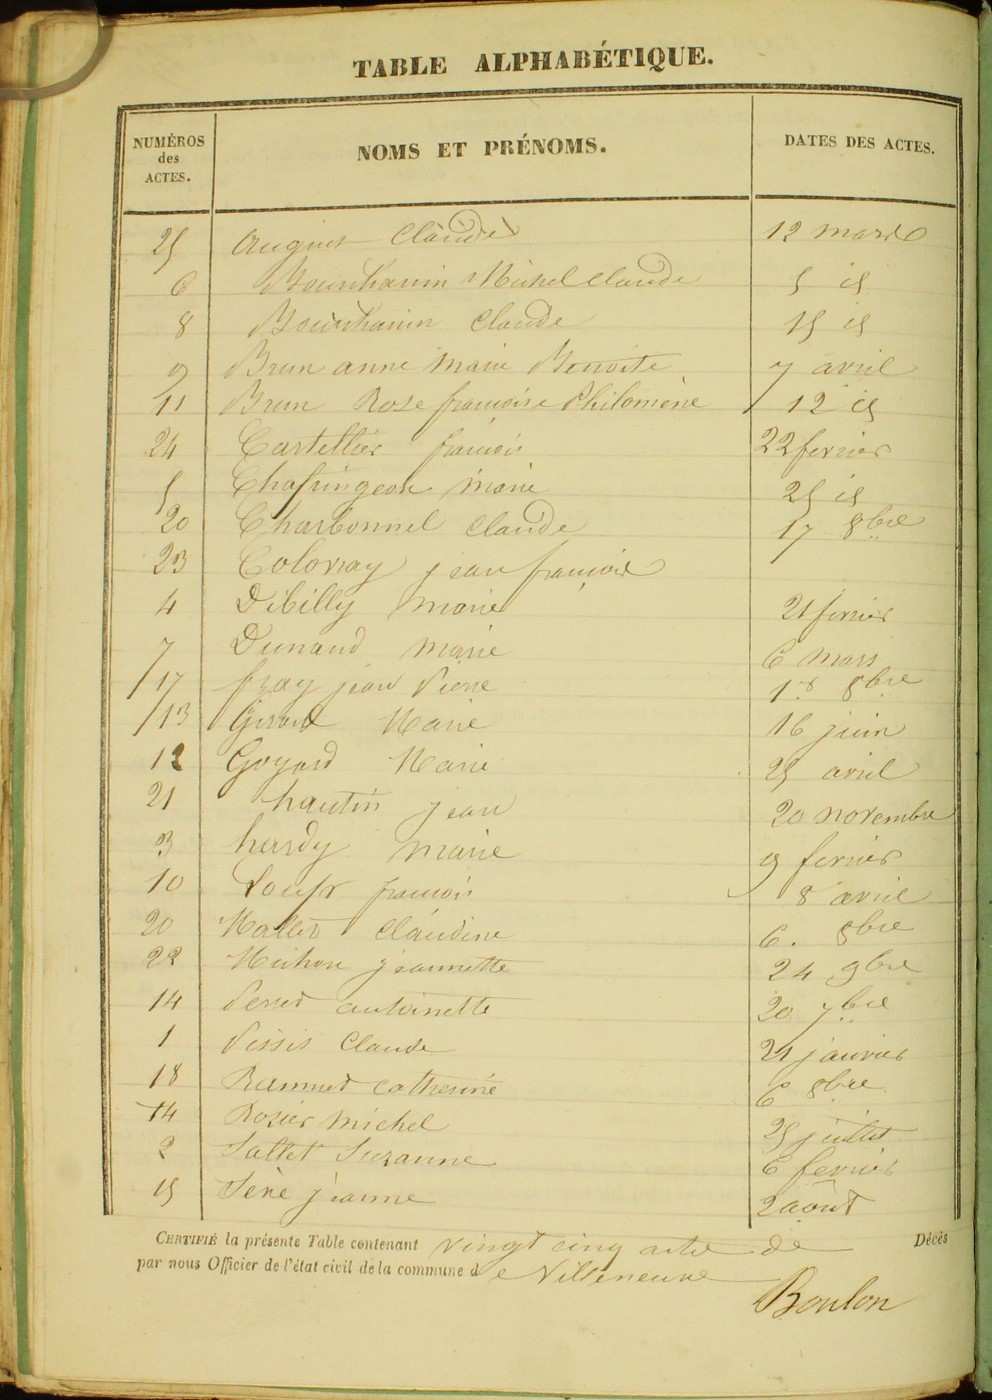 TABLE ALPHABÉTIQUE.
NUMÉROS des ACTES. NOMS ET PRÉNOMS. DATES DES ACTES.
25 Claude 12 mars
6 Bourchanin Michel Claude 5 id
8 Bourchanin Claude 15 id
9 Brun anne marie Benoite 7 avril
11 Brun Rose françoise Philomène 12 id
24 françois 22 fevrier
5 Chafringeon marie 25 id
20 Charbonnel Claude 17 8bre
23 Colovray jean françois
4 Debilly marie 21 fevrier
7 Dunand marie 6 mars
17 fray jean Pierre 1er 8bre
13 Girard Marie 16 juin
12 Goyard Marie 25 avril
21 hautin jean 20 novembre
3 hardy marie 9 fevrier
10 françois 8 avril
20 Mallet Claudine 6. 8bre
22 Michon jeannette 24 9bre
14 Perret antoinette 20 7bre
1 Pissis Claude 21 janvier
18 Catherine 6 8bre
14 Rozier michel 25 juillet
2 Sallet Suzanne 6 fevrier
15 Sève jeanne 2 août
CERTIFIÉ la présente Table contenant vingt cinq actes de Décès
par nous Officier de l'état civil de la commune de Villeneuve
Boulon